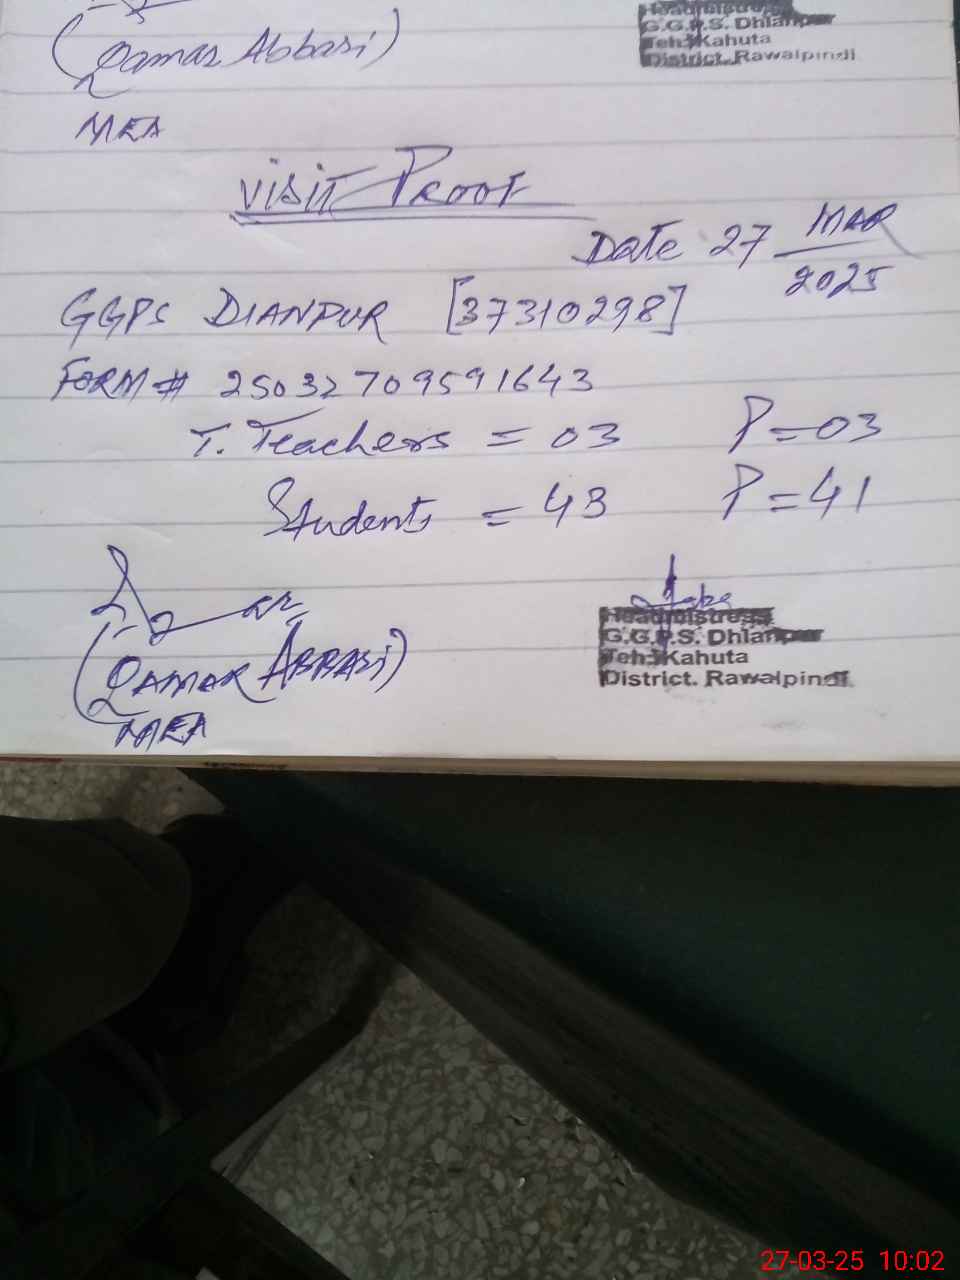 (Qamar Abbasi)
MEA
Headmistress
G.G.P.S. Dhianpur
Teh: Kahuta
District. Rawalpindi
VISIT PROOF
Date 27 MAR
2025
GGPS DIANPUR [37310298]
FORM # 25032709591643
T. Teachers = 03 P = 03
Students = 43 P = 41
(QAMAR ABBASI)
MEA
Headmistress
G.G.P.S. Dhianpur
Teh: Kahuta
District. Rawalpindi
27-03-25 10:02